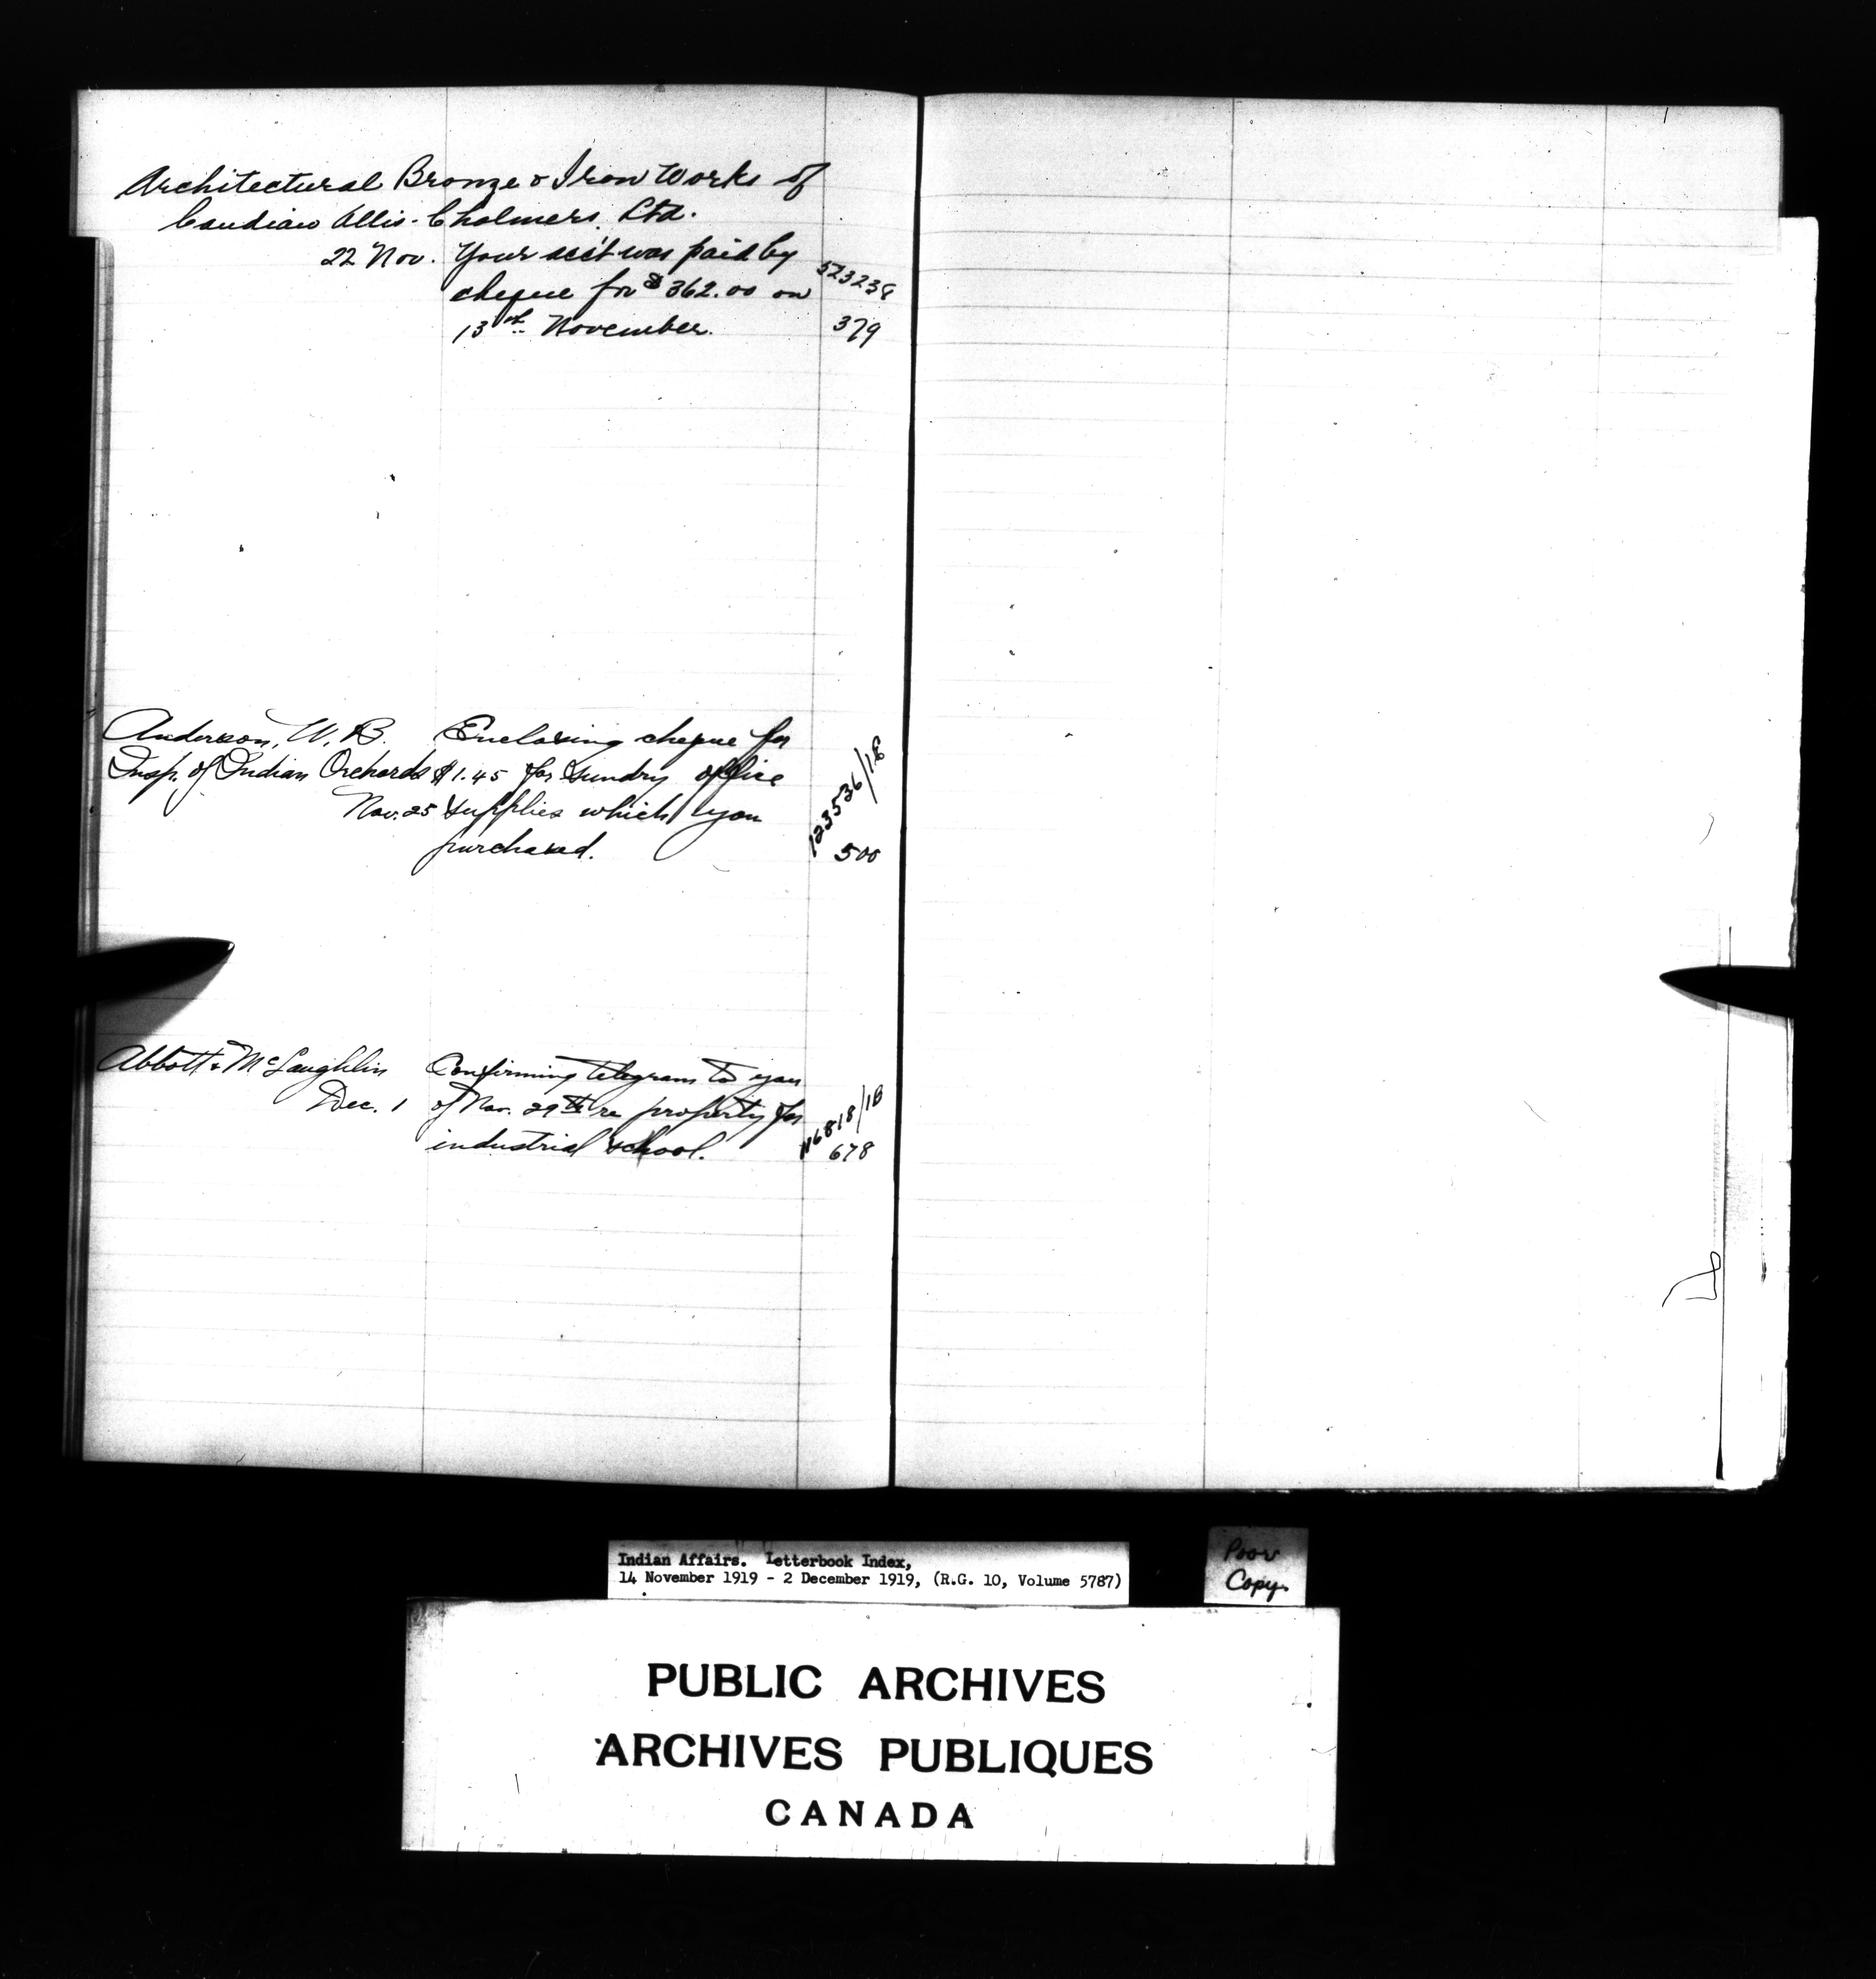 Architectural Bronze & Iron Works of
Candian Allis-Chalmers, Ltd.
22 Nov. Your acc't was paid by 523238
cheque for $362.00 on
13th November. 379
Anderson, W. B. Enclosing cheque for
Insp. of Indian Orchards $1.45 for sundry office 123536/1B
Nov. 25 supplies which you
purchased. 500
Abbott & McLaughlin Confirming telegram to you
Dec. 1 of Nov. 29th re property for 116818/1B
industrial school. 678
Indian Affairs. Letterbook Index,
14 November 1919 - 2 December 1919, (R.G. 10, Volume 5787)
Poor
Copy.
PUBLIC ARCHIVES
ARCHIVES PUBLIQUES
CANADA